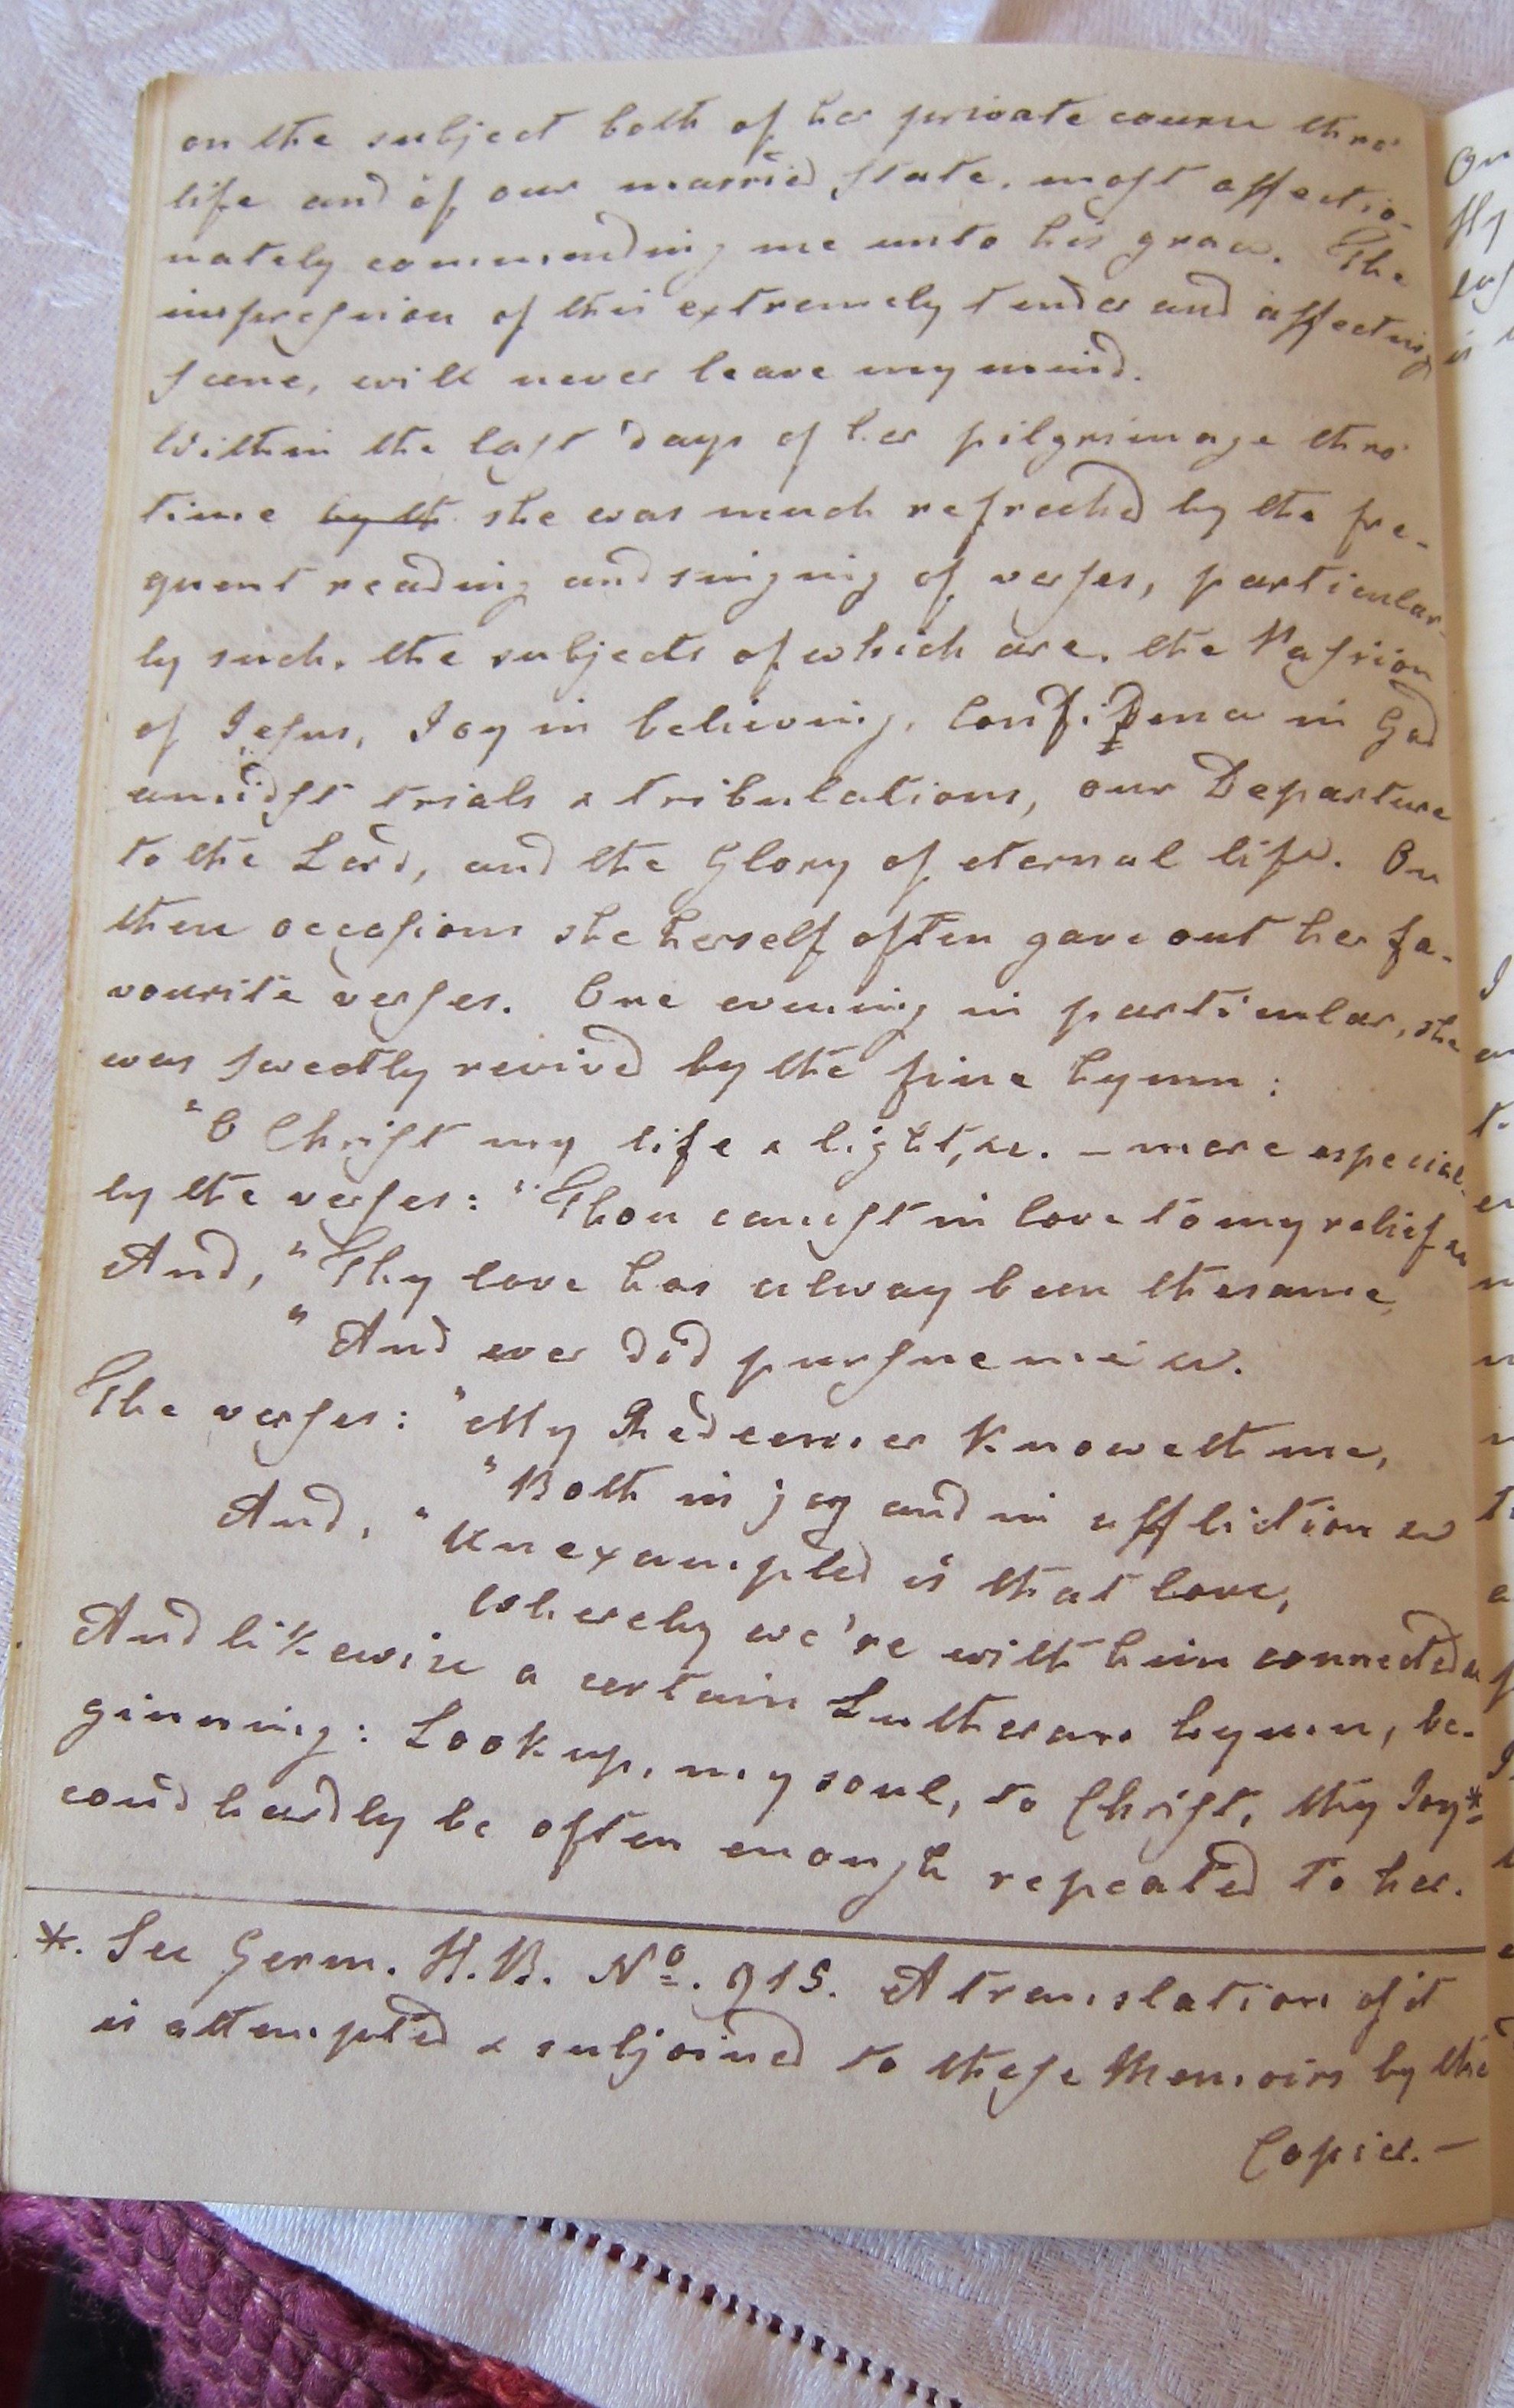 on the subject both of her private course thro'
life and of our married state, most affectio-
nately commending me unto his grace. The
impression of this extremely tender and affecting
scene, will never leave my mind.
Within the last days of her pilgrimage thro'
time by th she was much refreshed by the fre-
quent reading and singing of verses, particular-
ly such, the subjects of which are, the Passion
of Jesus, Joy in believing, Confidence in God
amidst trials & tribulations, our Departure
to the Lord, and the Glory of eternal life. On
these occasions she herself often gave out her fa-
vourite verses. One evening in particular, she
was sweetly revived by the fine hymn:
"O Christ my life & light, &c. – more especial-
ly the verses: "Thou camest in love to my relief &c
And, "Thy love has alway been the same,
"And ever did pursue me &c.
The verses: "My Redeemer knoweth me,
"Both in joy and in affliction &c
And, "Unexampled is that love,
Whereby we're with him connected &c
And likewise a certain Lutheran hymn, be-
ginning: Look up, my soul, to Christ, thy Joy*
cou'd hardly be often enough repeated to her.
*. See Germ. H.B. No. 915. A translation of it
is attempted & subjoined to these Memoirs by the
Copier. –